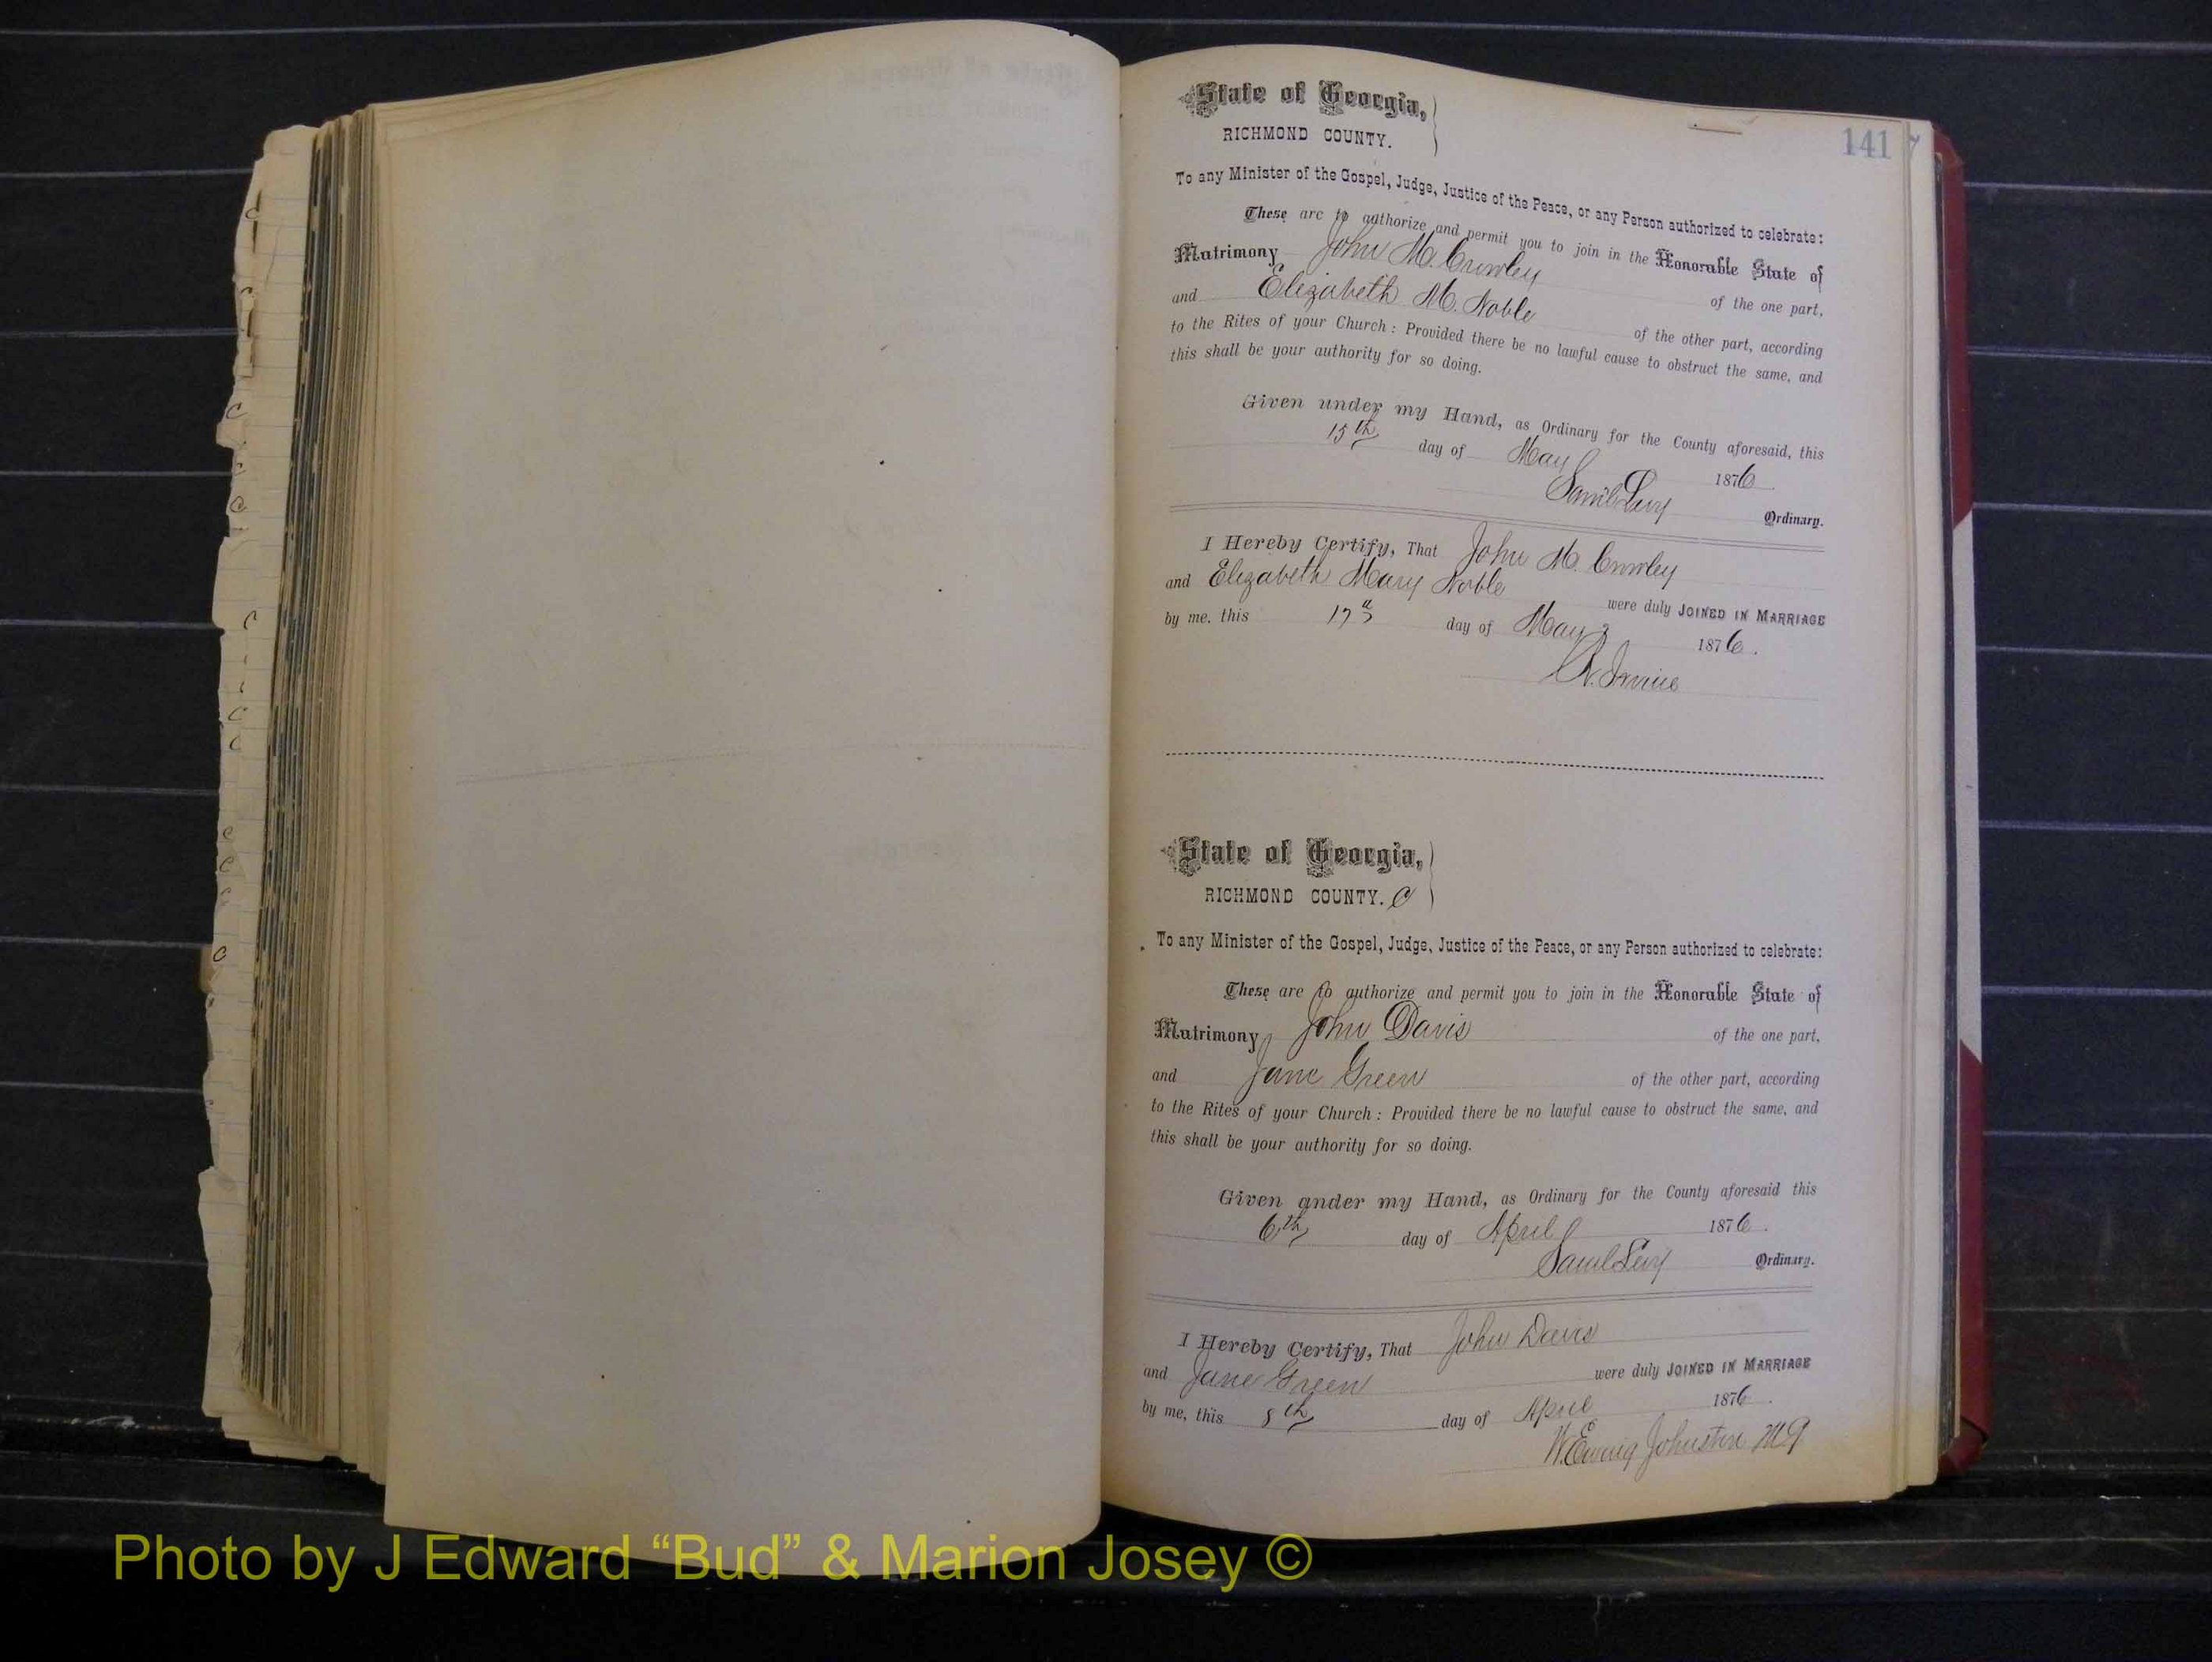 141
State of Georgia,
RICHMOND COUNTY.
To any Minister of the Gospel, Judge, Justice of the Peace, or any Person authorized to celebrate:
These are to authorize and permit you to join in the Honorable State of
Matrimony John M. Crowley of the one part,
and Elizabeth M. Noble of the other part, according
to the Rites of your Church: Provided there be no lawful cause to obstruct the same, and
this shall be your authority for so doing.
Given under my Hand, as Ordinary for the County aforesaid, this
15th day of May 1876
Saml Levy Ordinary.
I Hereby Certify, That John M. Crowley
and Elizabeth Mary Noble were duly JOINED IN MARRIAGE
by me, this 17 day of May 1876.
State of Georgia,
RICHMOND COUNTY. C
To any Minister of the Gospel, Judge, Justice of the Peace, or any Person authorized to celebrate:
These are to authorize and permit you to join in the Honorable State of
Matrimony John Davis of the one part,
and Jane Green of the other part, according
to the Rites of your Church: Provided there be no lawful cause to obstruct the same, and
this shall be your authority for so doing.
Given under my Hand, as Ordinary for the County aforesaid this
6th day of April 1876.
Saml Levy Ordinary.
I Hereby Certify, That John Davis
and Jane Green were duly JOINED IN MARRIAGE
by me, this 8th day of April 1876.
W. Ewing Johnston MG
Photo by J Edward “Bud” & Marion Josey ©